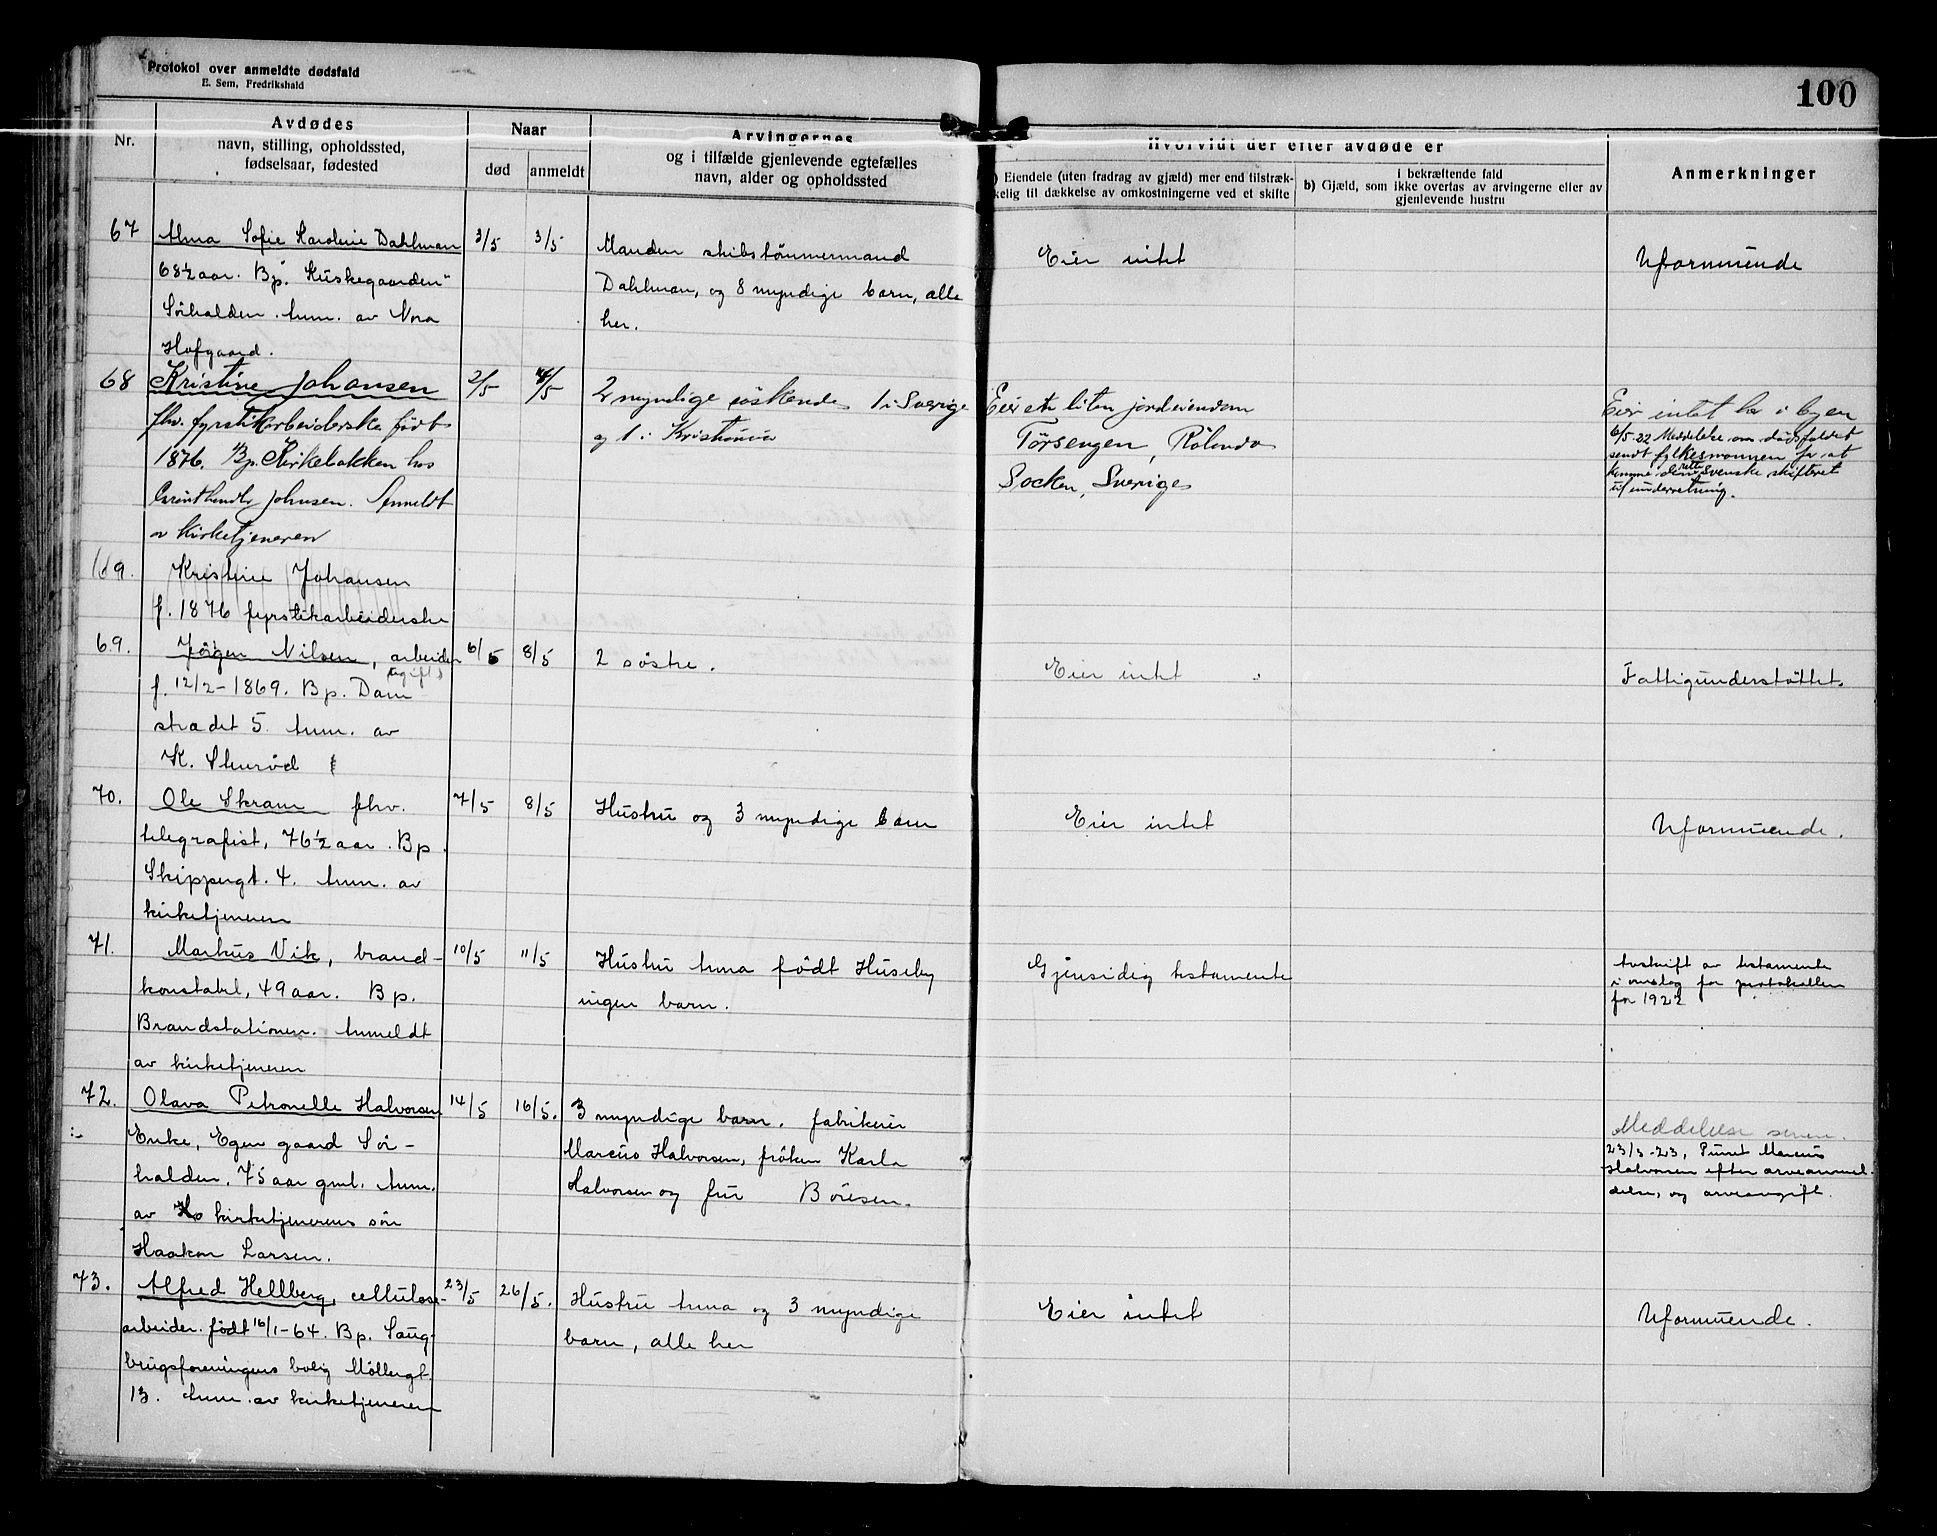 Protokol over anmeldte dødsfald
E. Sem, Fredrikshald
100
Nr.
Avdødes
navn, stilling, opholdssted,
fødselsaar, fødested
Naar
død
anmeldt
Arvingernes
og i tilfælde gjenlevende egtefælles
navn, alder og opholdssted
Hvorvidt der efter avdøde er
) Eiendele (uten fradrag av gjæld) mer end tilstræk-
kelig til dækkelse av omkostningerne ved et skifte
i bekræftende fald
b) Gjæld, som ikke overtas av arvingerne eller av
gjenlevende hustru
Anmerkninger
67
Alma Sofie Karoline Dahlman
68½ aar. Bp. "Kuskegaarden"
Sörhalden. Anm. av Nora
Hofgaard.
3/5
3/5
Manden skibstömmermand
Dahlman, og 8 myndige barn, alle
her.
Eier intet
Uformuende
68
Kristine Johansen
fhv. fyrstikarbeiderske födt
1876. Bp. Kirkebakken hos
Johnsen. Anmeldt
av kirketjeneren
2/5
4/5
2 myndige söskende 1 i Sverige
og 1 i Kristiania
Eier en liten jordeiendom
Törsengen, Rölanda
Socken, Sverige
Eier intet her i byen
6/5-22 Meddelelse om dödsfaldet
sendt fylkesmannen for at
komme den rette svenske skifteret
til underretning.
69.
Kristine Johansen
f. 1876 fyrstikarbeiderske
69.
Jörgen Nilsen, arbeider
ugift
f. 12/2-1869. Bp. Dam
strædet 5. Anm. av
K. Skuröd
6/5
8/5
2 söstre.
Eier intet
Fattigunderstöttet.
70.
Ole Skram fhv.
telegrafist, 76½ aar. Bp.
Skippergt. 4. Anm. av
kirketjeneren
7/5
8/5
Hustru og 3 myndige barn
Eier intet
Uformuende.
71.
Markus Vik, brand-
konstabel, 49 aar. Bp.
Brandstationen. Anmeldt
av kirketjeneren
10/5
11/5
Hustru Anna födt Huseby
ingen barn.
Gjensidig testamente
Avskrift av testamente
i omslag for protokollen
for 1922
72.
Olava Petronelle Halvorsen
Enke, Egen gaard Sör-
halden, 75 aar gml. Anm.
av kirketjenerens sön
Haakon Larsen.
14/5
16/5.
3 myndige barn. fabrikeier
Marcus Halvorsen, fröken Karla
Halvorsen og fru Börresen.
Meddelelse senere.
23/3-23, Purret Marcus
Halvorsen efter arveanmel-
delse, og arveavgift.
73.
Alfred Hellberg, cellulose-
arbeider. födt 16/1-64. Bp. Saug-
brugsforeningens bolig Möllergt.
13. Anm. av kirketjeneren
23/5
26/5.
Hustru Anna og 3 myndige
barn, alle her
Eier intet
Uformuende.